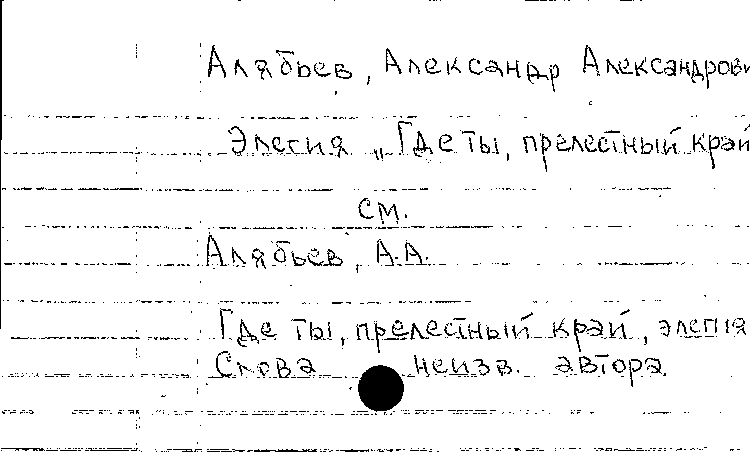 Алябьев, Александр Александрови
Элегия „Где ты, прелестный край
см.
Алябьев, А.А.
Где ты, прелестный край, элегия
Слова неизв. автора.